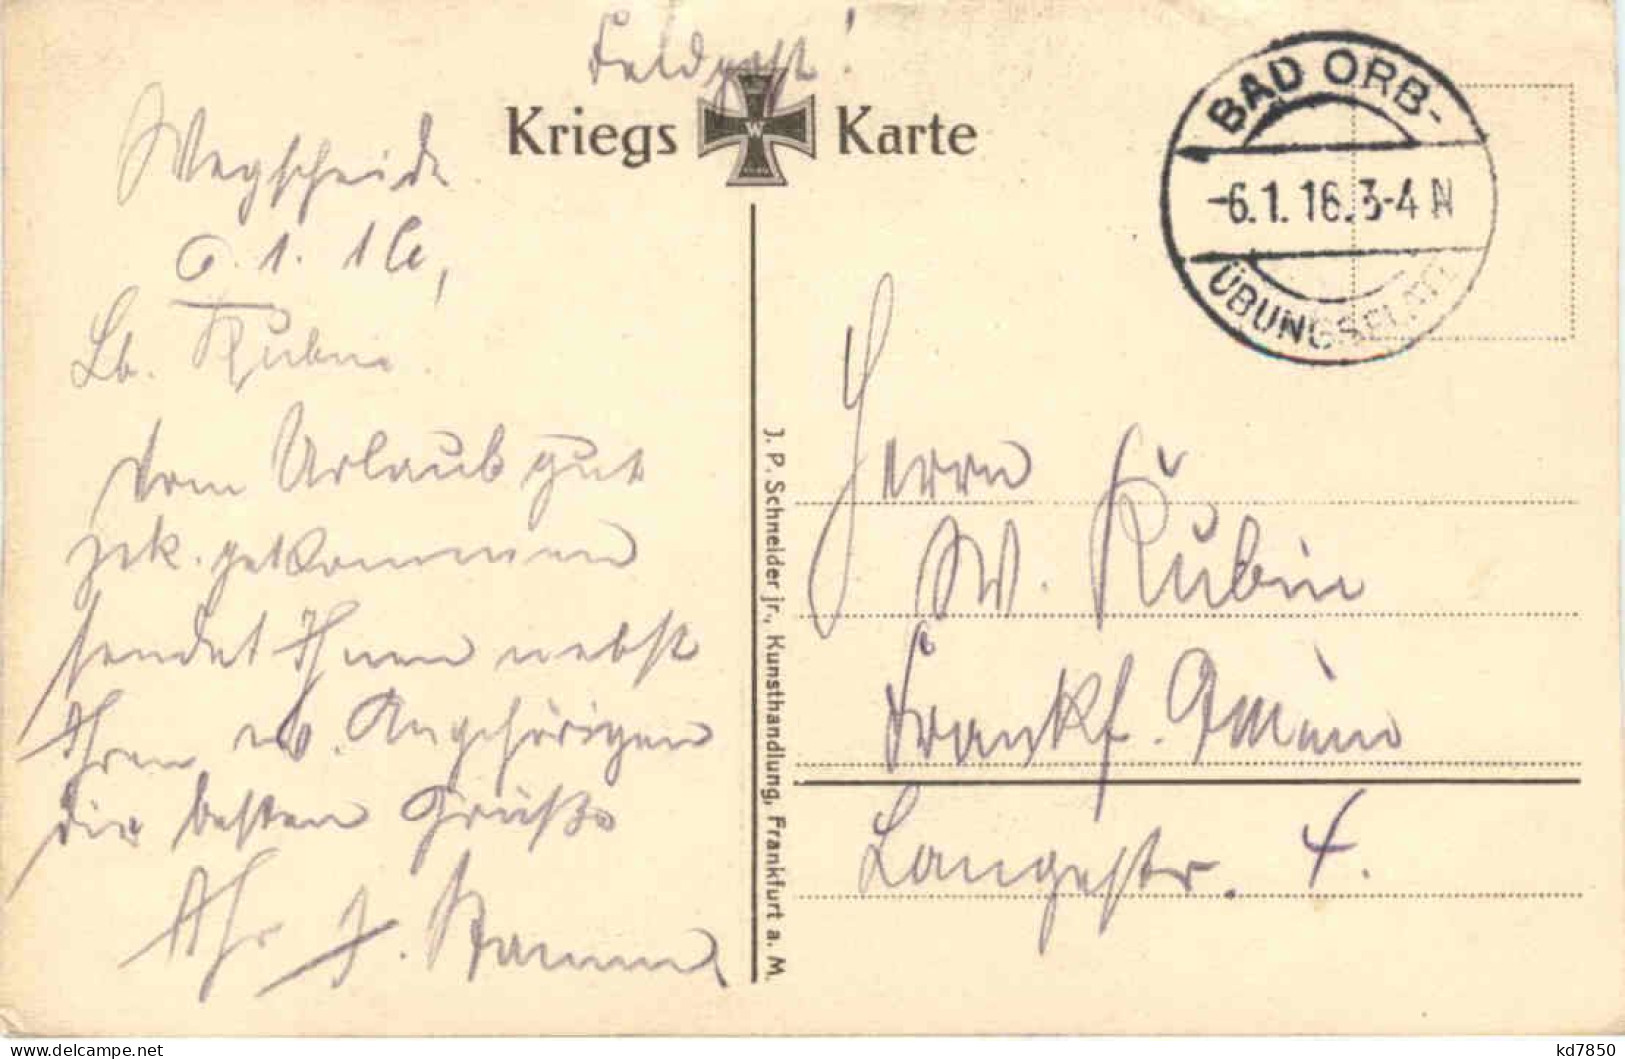 Feldpost!
Kriegs Karte
BAD ORB-
-6.1.16.3-4 N
ÜBUNGSPLATZ
Wegscheide
6.1.16,
Lb. Rubin.
Vom Urlaub gut
zrk. gekommen
sendet Ihnen nebst
Ihren w. Angehörigen
die besten Grüße
Ihr J. Stamm
J. P. Schneider jr., Kunsthandlung, Frankfurt a. M.
Herrn
W. Rubin
Frankf. Main
Langestr. 4.
kd7850
delcampe.net